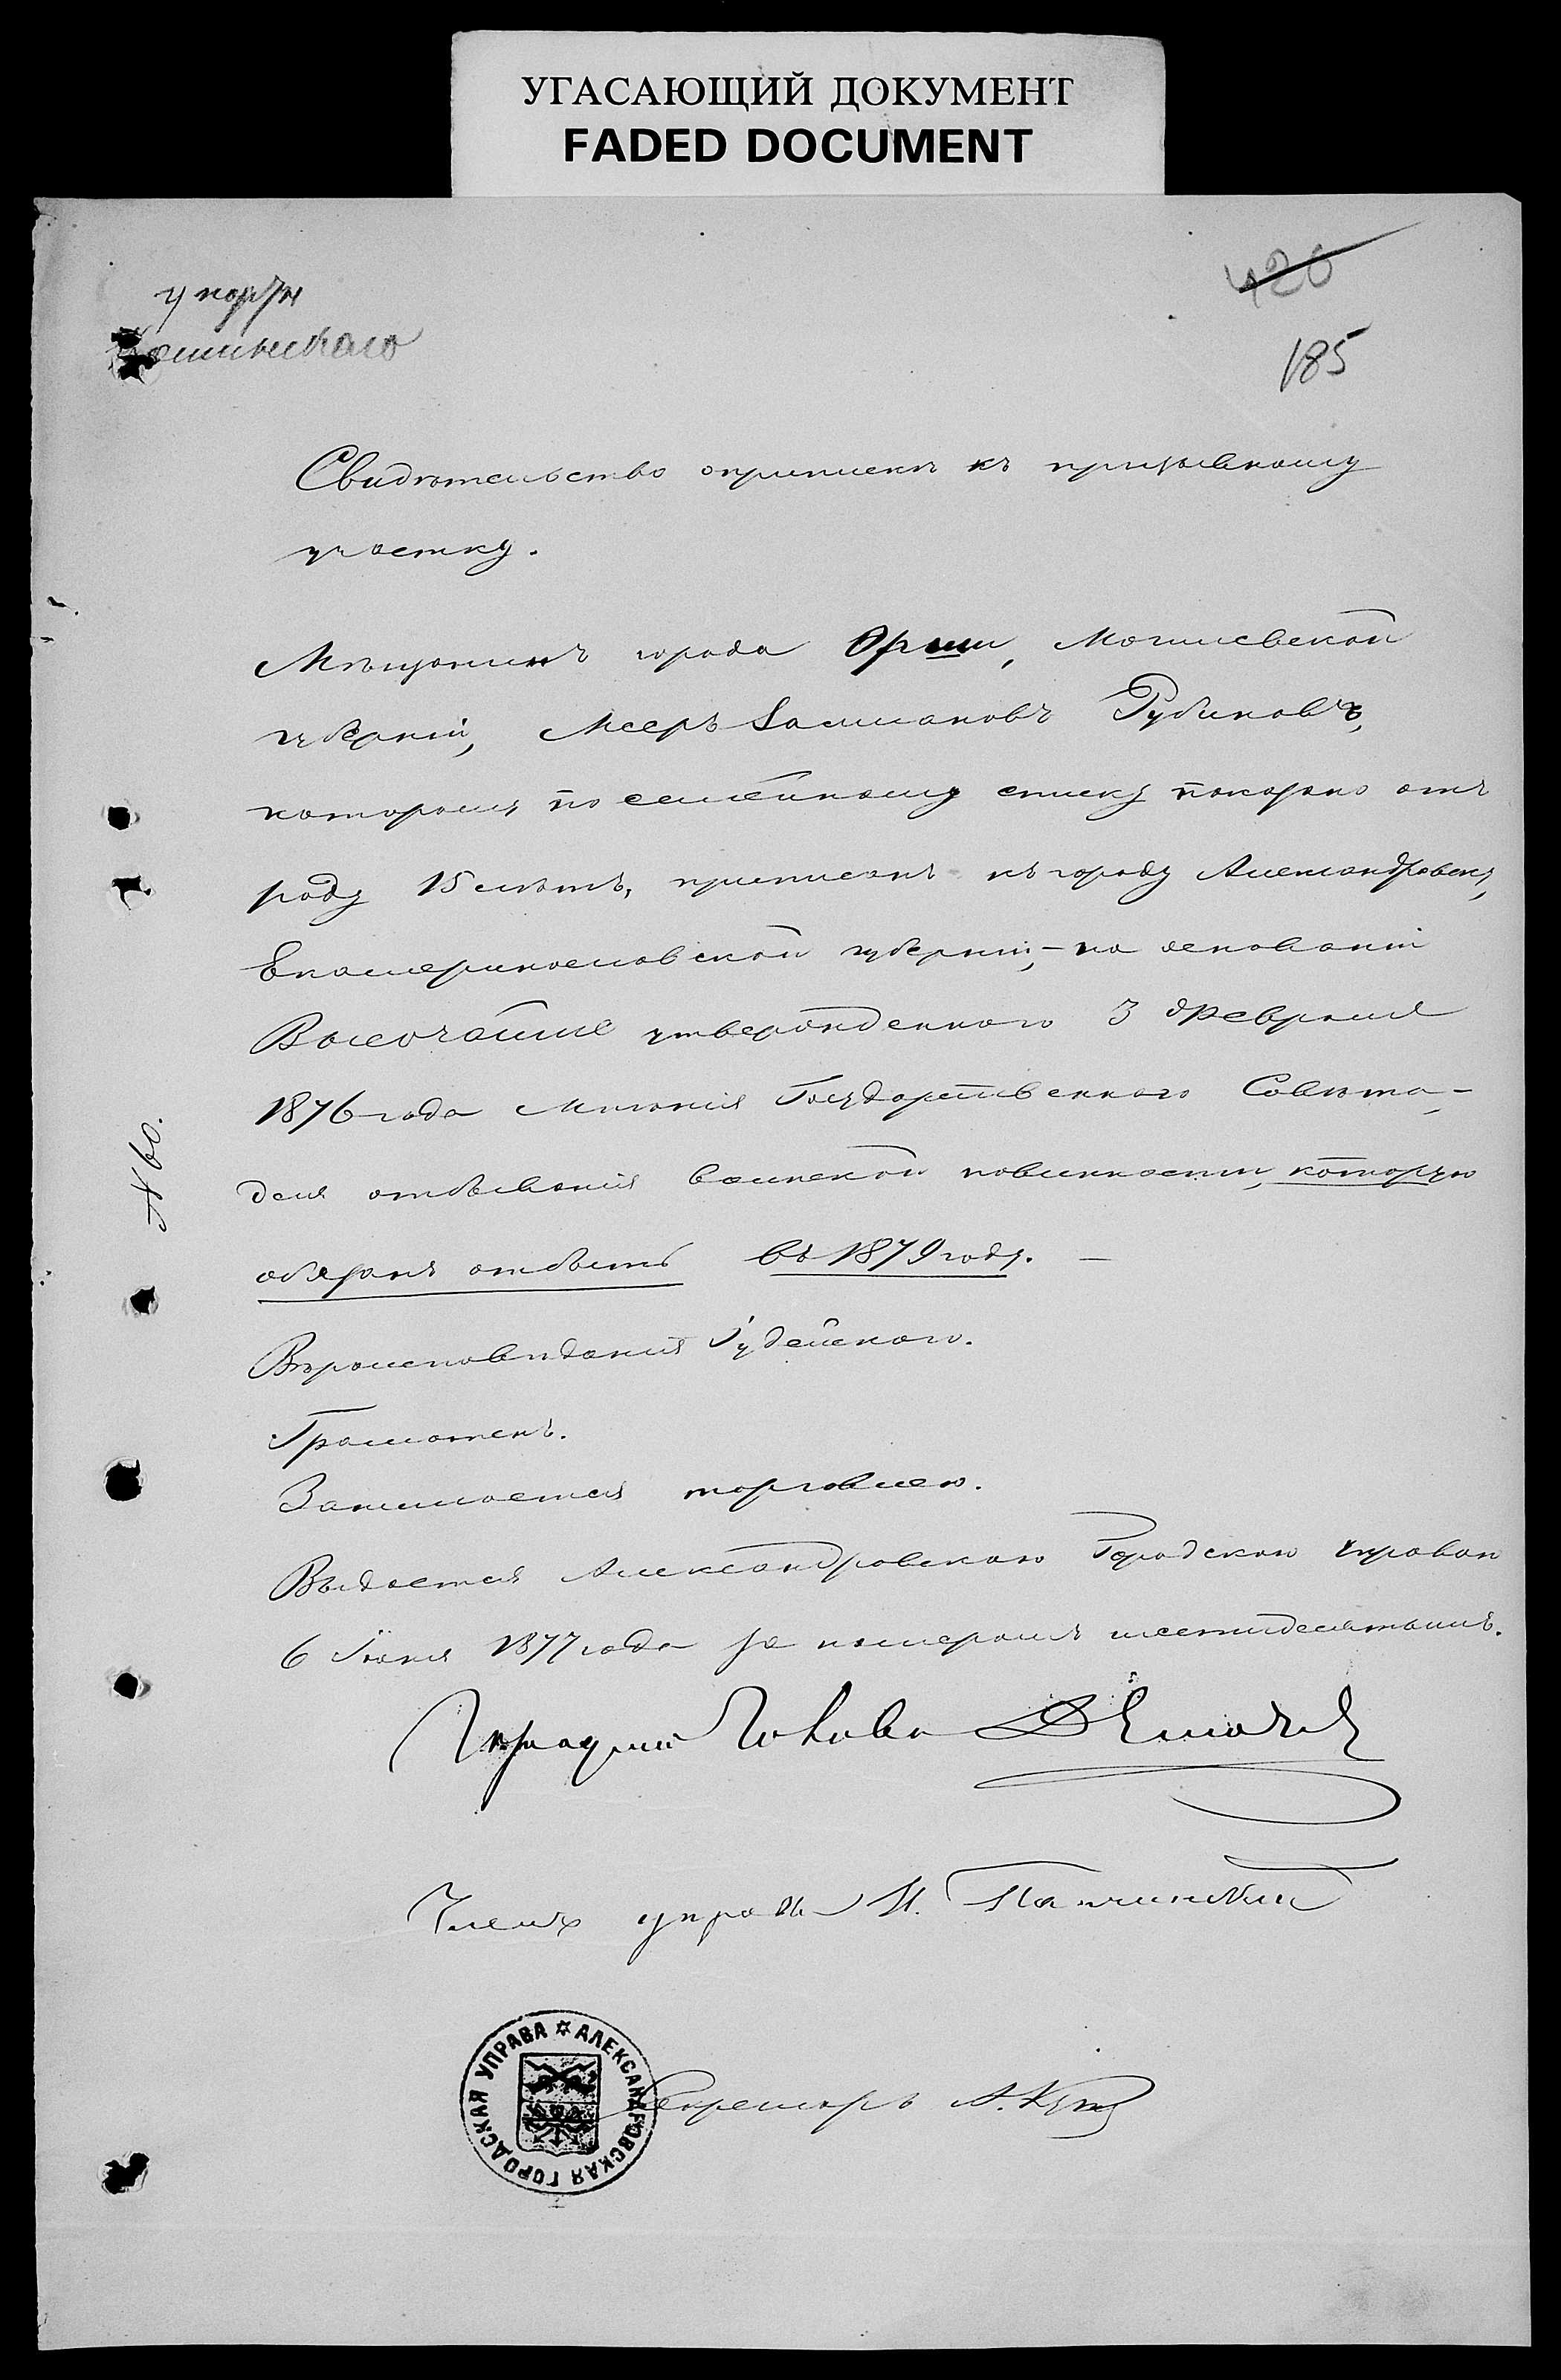 УГАСАЮЩИЙ ДОКУМЕНТ
FADED DOCUMENT
420
185
Свидѣтельство о припискѣ къ призывному
участку.
Мѣщанинъ города Орши, Могилевской
губерніи, Мееръ Залмановъ Рубиновъ,
которому по семейному списку показано отъ
роду 15 лѣтъ, приписанъ къ городу Александровску,
Екатеринославской губерніи, – на основаніи
Высочайше утвержденнаго 3 Февраля
1876 года Мнѣнія Государственнаго Совѣта, –
для отбыванія воинской повинности, которую
обязанъ отбыть въ 1879 году. –
№ 60.
Вѣроисповѣданія Іудейскаго.
Грамотенъ.
Занимается торговлею.
Выдается Александровскою Городскою Управою
6 Іюня 1877 года за номеромъ шестидесятымъ.
Городской Голова
Членъ управы И.
Секретарь А.
АЛЕКСАНДРОВСКАЯ ГОРОДСКАЯ УПРАВА